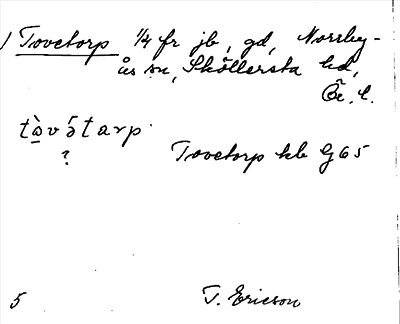 1) Tovetorp 1/4 fr jb, gd, Norrby-
ås sn, Sköllersta hd,
Ör. l.
tàvótarp
?
Tovetorp kb G65
5
T. Ericson